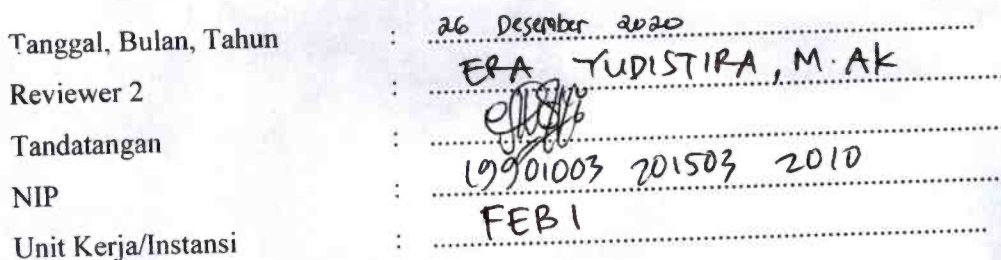 Tanggal, Bulan, Tahun : 26 Desember 2020
Reviewer 2 : ERA YUDISTIRA, M.AK
Tandatangan :
NIP : 19901003 201503 2010
Unit Kerja/Instansi : FEBI